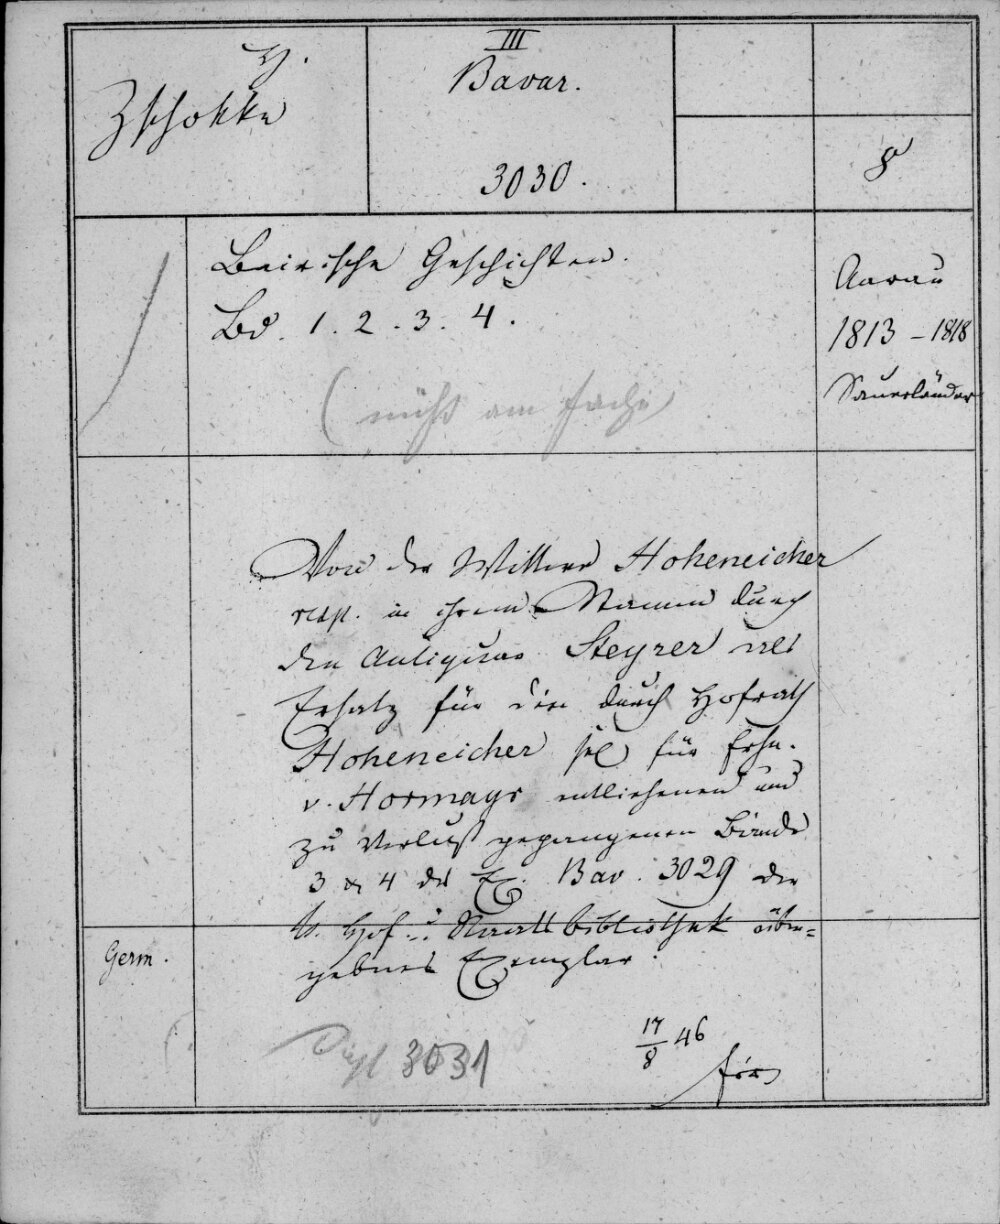 H.
Zschokke
III
Bavar.
3030.
8
Bairische Geschichten.
Bd. 1. 2. 3. 4.
Aarau
1813 – 1818
Sauerländer
( nicht am Fache )
Von der Wittwe Hoheneicher
resp. in ihrem Namen durch
den Antiquar Steyrer als
Ersatz für die durch Hofrath
Hoheneicher sel. für Frhn.
v. Hormayr entliehenen und
zu Verlust gegangenen Bände
3 & 4 des Ex. Bav. 3029 der
k. Hof- u. Staatsbibliothek über=
gebenes Exemplar.
Germ.
17/8 46
3031